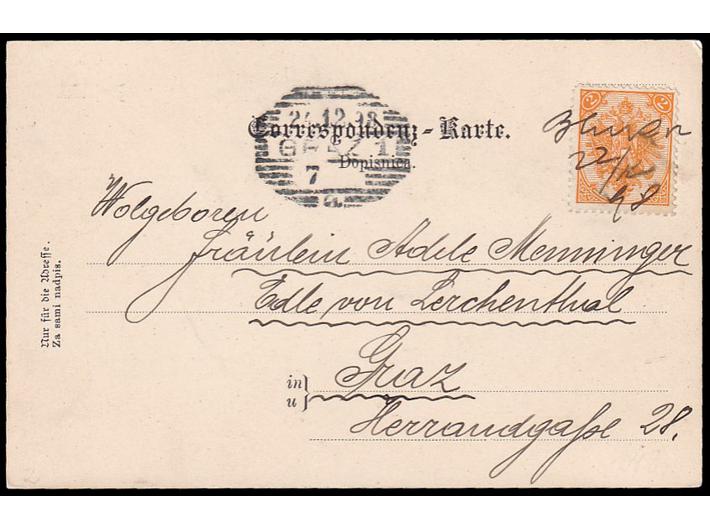 24.12.98
GRAZ 1
7
a
Correspondenz-Karte.
Dopisnica
2 2
22/12
98
Wolgeboren
Fräulein Adele Menninger
Edle von Lerchenthal
in
u
Graz
Herrandgaße 28.
Nur für die Adresse.
Za sami nadpis.